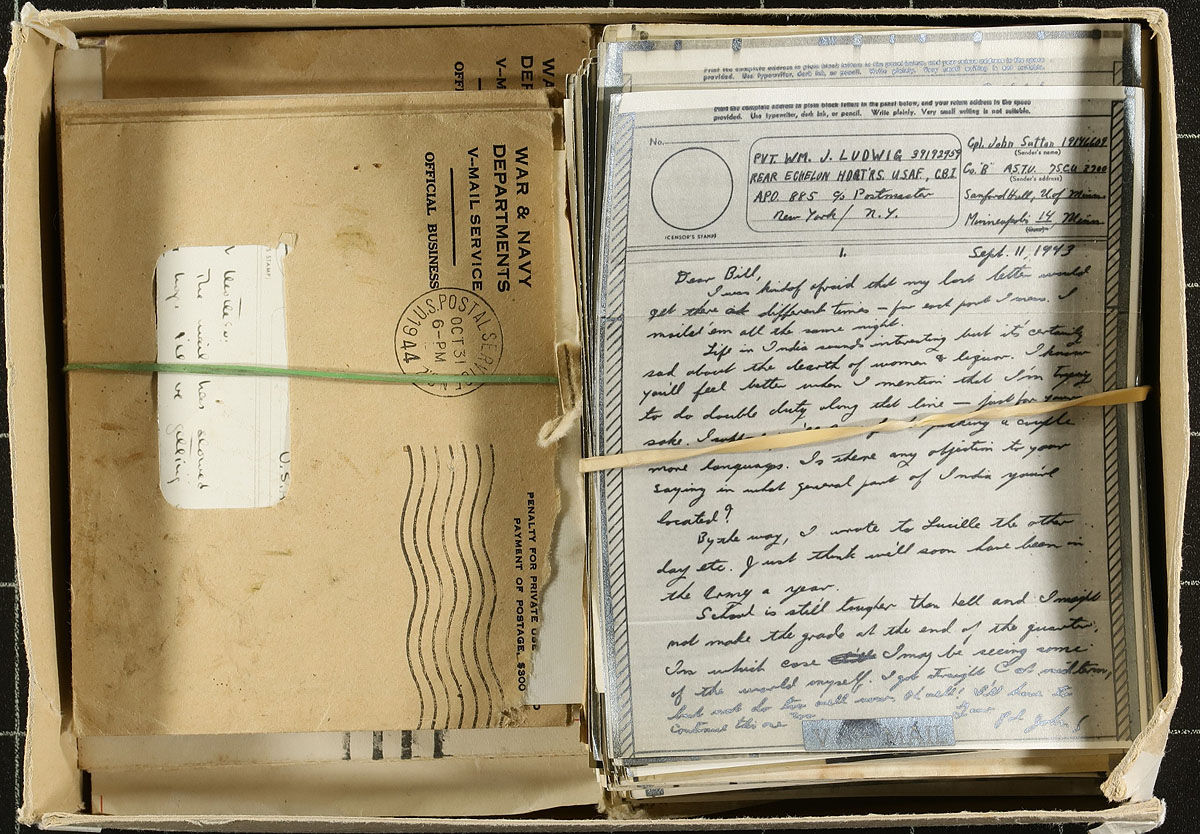 WAR
DEP
V-M
OFF
WAR & NAVY
DEPARTMENTS
V-MAIL SERVICE
OFFICIAL BUSINESS
U.S. POSTAL SERVICE
OCT 31
6-PM
1944
PENALTY FOR PRIVATE USE
PAYMENT OF POSTAGE, $300
STAMP
The mail has slowed
U.S.
Print the complete address in plain block letters in the panel below, and your return address in the space
provided. Use typewriter, dark ink, or pencil. Write plainly. Very small writing is not suitable.
Print the complete address in plain block letters in the panel below, and your return address in the space
provided. Use typewriter, dark ink, or pencil. Write plainly. Very small writing is not suitable.
No.
(CENSOR'S STAMP)
PVT. WM. J. LUDWIG 39192959
REAR ECHELON HDQT'RS. USAF, C.B.I
APO 885 c/o Postmaster
New York / N.Y.
Cpl. John Sutton
(Sender's name)
Co. "B" A.S.T.U.
(Sender's address)
Sanford Hall, U. of Minn
Minneapolis 14, Minn
(Date)
1.
Sept. 11, 1943
Dear Bill,
I was kind of afraid that my last letter would
get there at different times – for each part I mean. I
mailed 'em all the same night.
Life in India sounds intresting but it's certainly
sad about the dearth of women & liquor. I know
you'll feel better when I mention that I'm trying
to do double duty along that line – just for your
sake. a couple
more languages. Is there any objection to your
saying in what general part of India you're
located?
By the way, I wrote to Lucille the other
day etc. Just think we'll soon have been in
the Army a year.
School is still tougher than hell and I might
not make the grade at the end of the quarter.
In which case I may be seeing some
of the world myself. I got straight C at midterm,
continue this one
Your pal John!
V MAIL